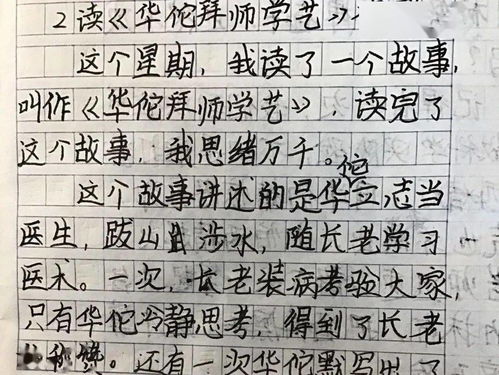 2读《华佗拜师学艺》
这个星期，我读了一个故事，
叫作《华佗拜师学艺》，读完了
这个故事，我思绪万千。
这个故事讲述的是华佗立志当
医生，跋山涉水，随长老学习
医术。一次，长老装病考验大家，
只有华佗冷静思考，得到了长老
称赞。还有一次华佗默写出了